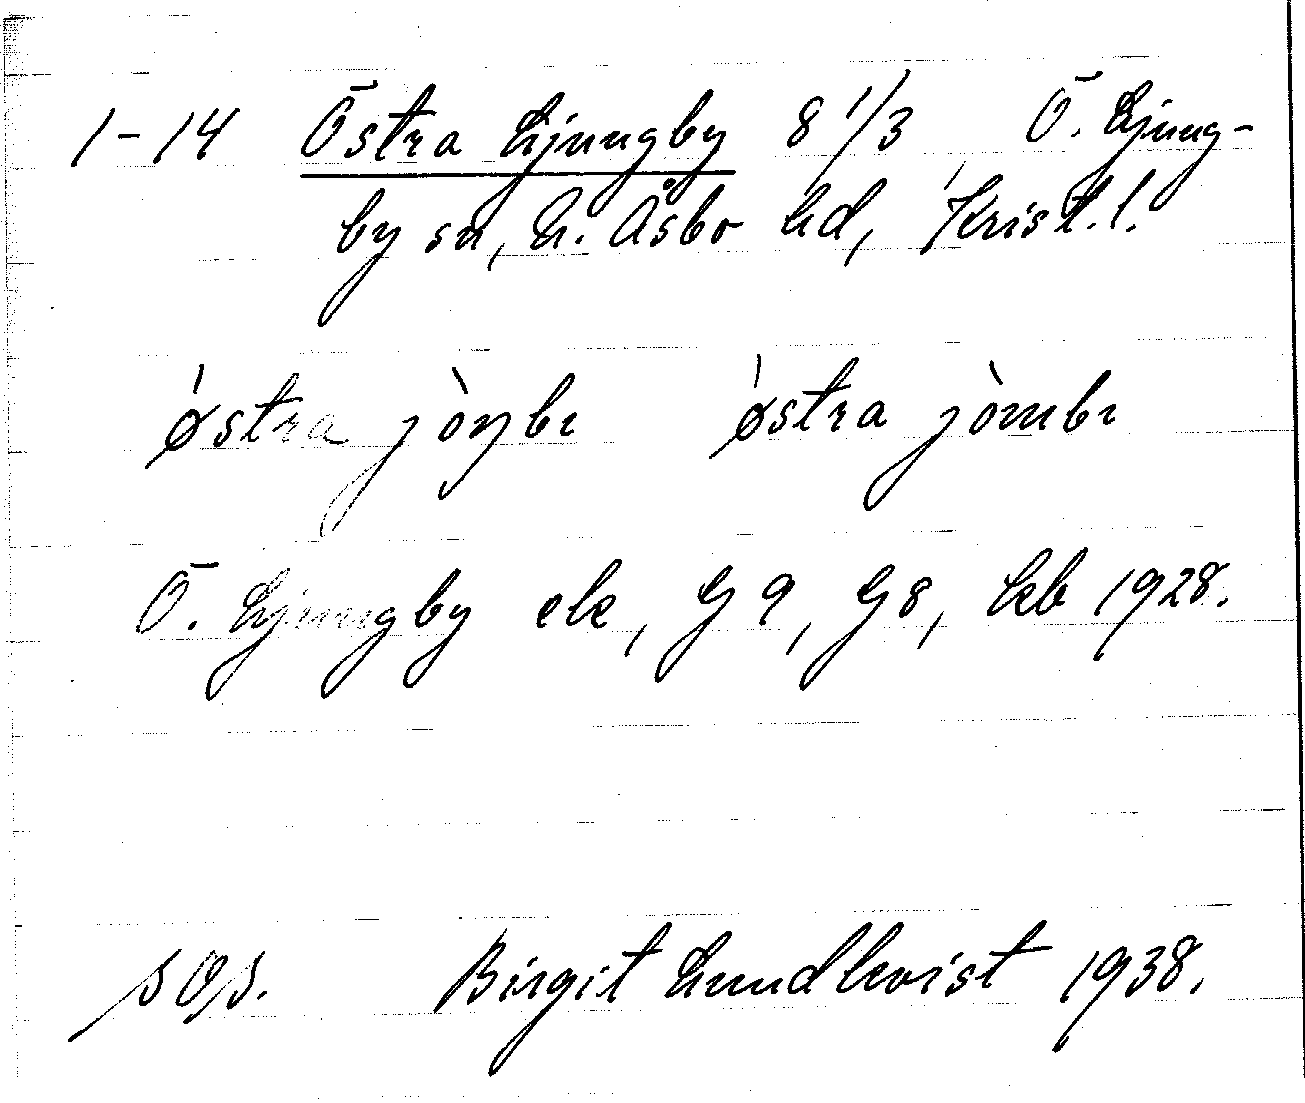 1-14 Östra Ljungby 8 1/3 Ö. Ljung-
by sn, N. Åsbo hd, Krist. l.
ˈøstra jòŋbɩ ˈøstra jòmbɩ
Ö. Ljungby ek, G 9, G 8, kb 1928.
SOS. Birgit Lundkvist 1938.